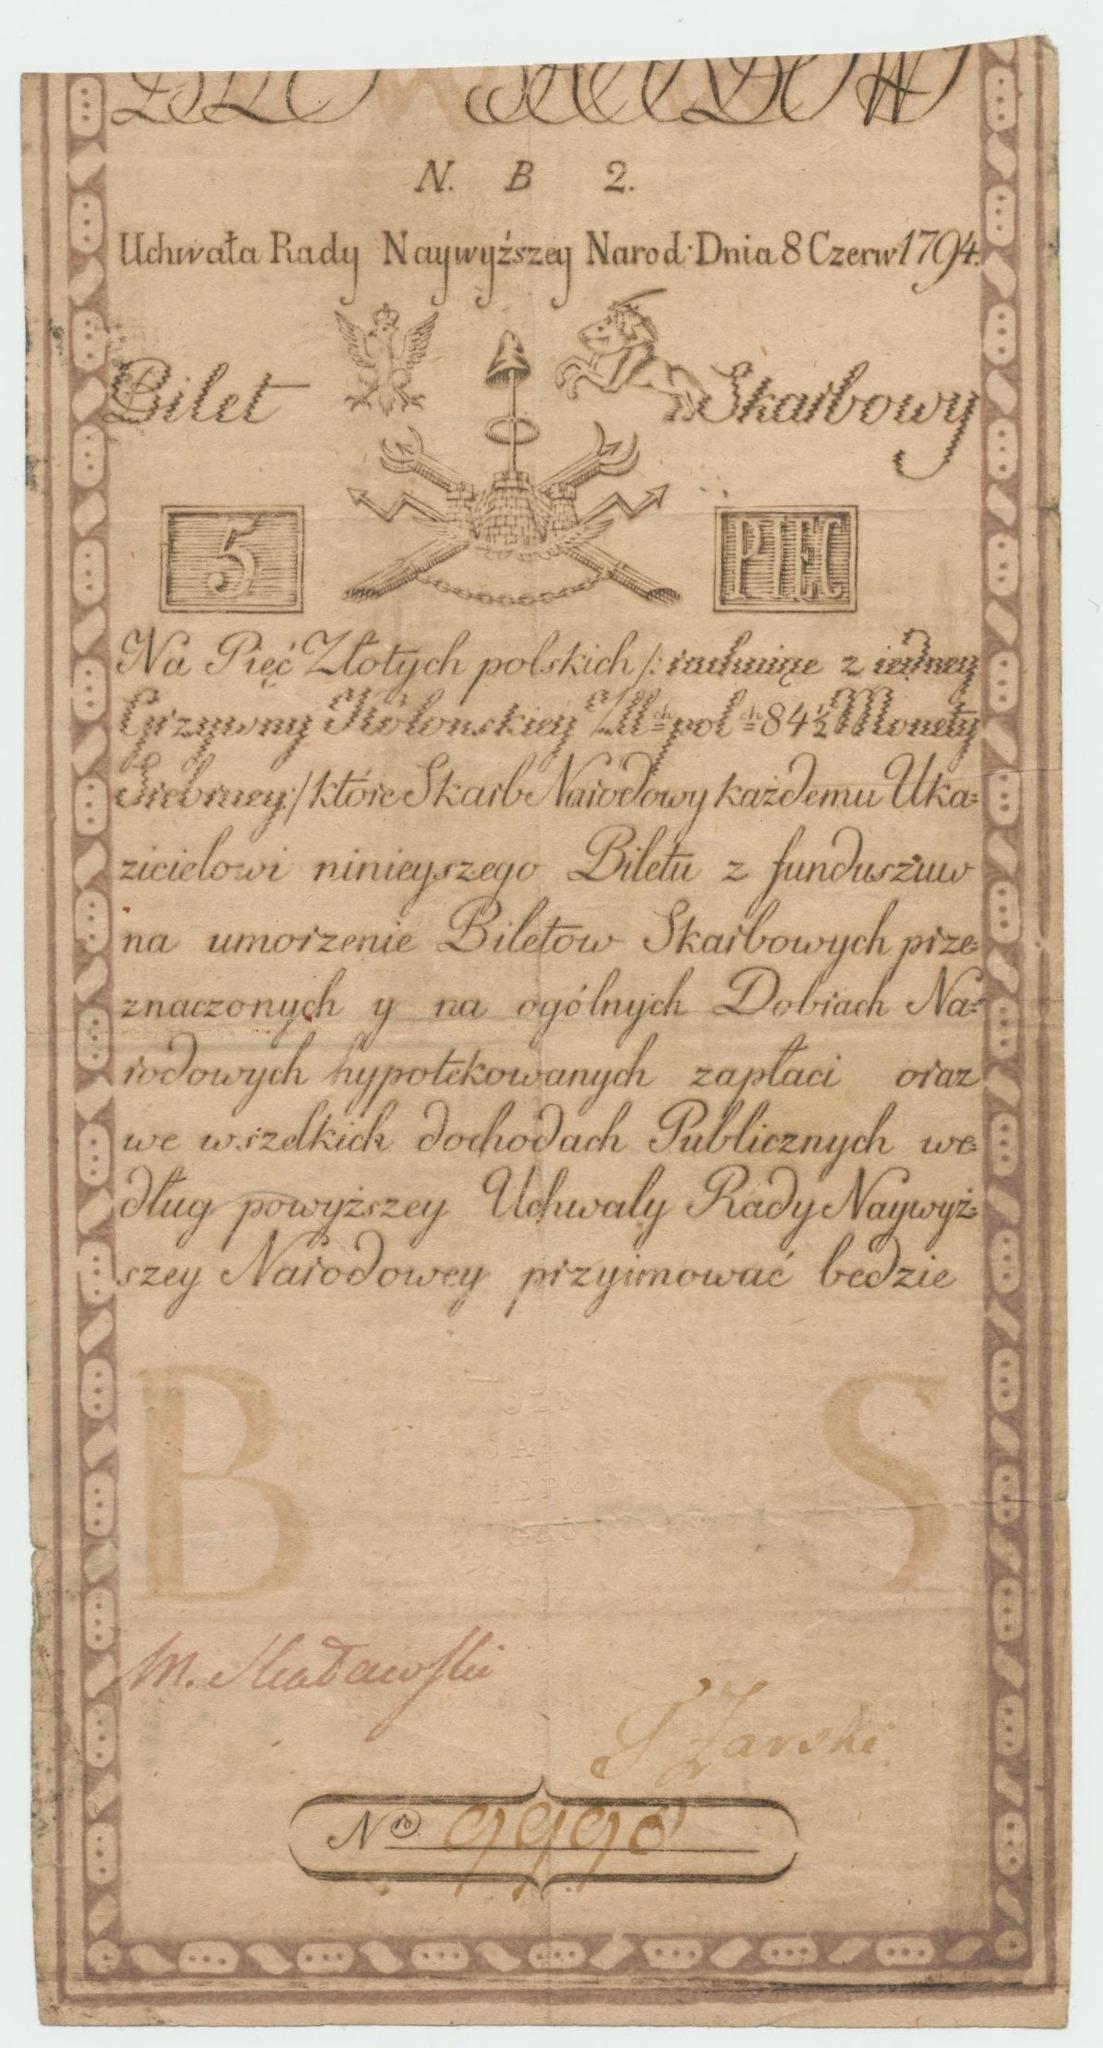 N. B 2.
Uchwała Rady Naywyższey Narod. Dnia 8 Czerw 1794.
Bilet Skarbowy
5 PIĘC
Na Pięć Złotych polskich /: rachuiąc z iedney
Grzywny Kolonskiey Złł ch pol ch 84 1/2 Monety
Srebrney :/ które Skarb Narodowy każdemu Uka=
zicielowi ninieyszego Biletu z funduszuw
na umorzenie Biletow Skarbowych prze=
znaczonych y na ogólnych Dobrach Na=
rodowych hypotekowanych zapłaci oraz
we wszelkich dochodach Publicznych we=
dług powyższey Uchwały Rady Naywyż=
szey Narodowey przyimować bedzie
B S
M. Skadawski
Żarski
Nro 9990